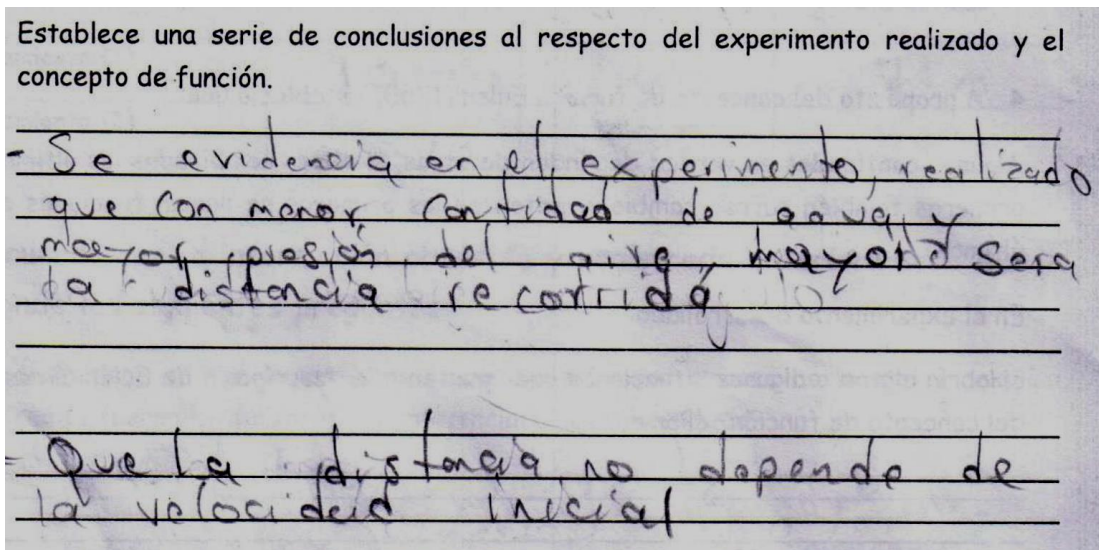 Establece una serie de conclusiones al respecto del experimento realizado y el
concepto de función.
- Se evidencia en el experimento, realizado
que con menor cantidad de agua,
mayor presión del aire, mayor sera
la distancia recorrida.
- Que la distancia no depende de
la velocidad inicial